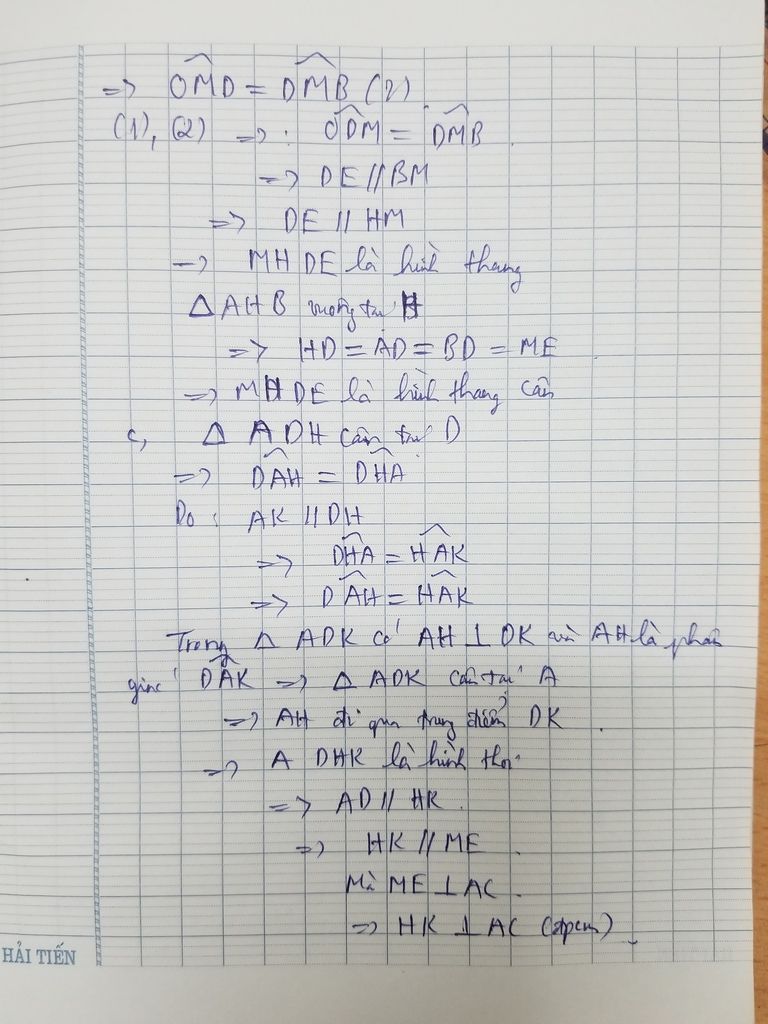 => OM̂D = DM̂B (2)
(1), (2) => : OD̂M = DM̂B.
=> DE // BM
=> DE // HM
-> MHDE là hình thang
Δ AHB vuông tại H
=> HD = AD = BD = ME.
=> MHDE là hình thang cân
c, Δ ADH cân tại D
=> DÂH = DĤA
Do: AK // DH
=> DĤA = HÂK
=> DÂH = HÂK
Trong Δ ADK có AH ⊥ DK và AH là phân
giác DÂK => Δ ADK cân tại A
=> AH đi qua trung điểm DK.
=> ADHK là hình thoi
=> AD // HK.
=> HK // ME.
Mà ME ⊥ AC.
=> HK ⊥ AC (đpcm)
HẢI TIẾN